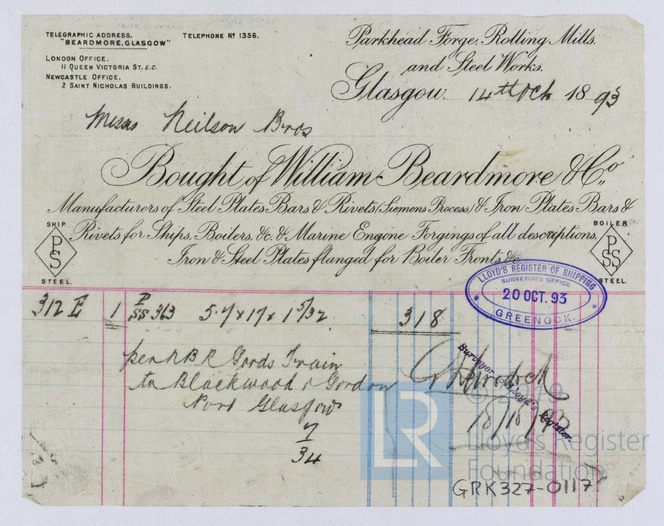 TELEGRAPHIC ADDRESS,
"BEARDMORE, GLASGOW"
TELEPHONE Nº 1356.
LONDON OFFICE.
11 QUEEN VICTORIA ST. E.C.
NEWCASTLE OFFICE,
2 SAINT NICHOLAS BUILDINGS.
Parkhead Forge, Rolling Mills,
and Steel Works.
Glasgow. 14th Oct 1893
Messrs Neilson Bros
Bought of William Beardmore & Co.,
Manufacturers of Steel Plates Bars & Rivets (Siemens Process) & Iron Plates Bars &
Rivets for Ships, Boilers, &c. & Marine Engine Forgings of all descriptions,
Iron & Steel Plates flanged for Boiler Fronts &c.
SHIP
P
S
STEEL.
BOILER
P
SS
STEEL.
LLOYD'S REGISTER OF SHIPPING
SURVEYOR'S OFFICE
20 OCT. 93
GREENOCK.
312 E 1 P SS 363 5.7 x 17 x 1 5/32 318
per N B R Goods Train
to Blackwood & Gordon
Port Glasgow
7
34
Surveyor
© 2019
Lloyd's Register
Foundation
LR
GRK327-0117